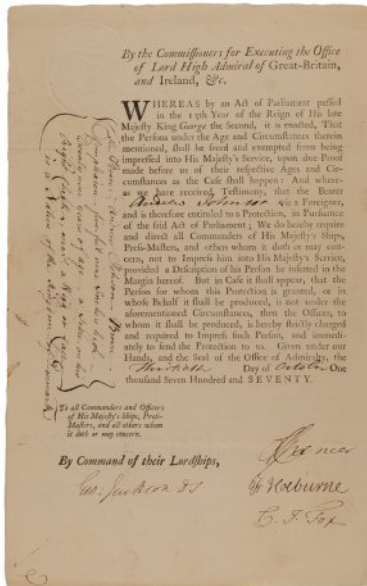 By the Commissioners for Executing the Office
of Lord High Admiral of Great-Britain,
and Ireland, &c.
WHEREAS by an Act of Parliament passed
in the 13th Year of the Reign of His late
Majesty King George the Second, it is enacted, That
the Persons under the Age and Circumstances therein
mentioned, shall be freed and exempted from being
impressed into His Majesty's Service, upon due Proof
made before us of their respective Ages and Cir-
cumstances as the Case shall happen: And where-
as we have received Testimony, that the Bearer
Andrew Johnson is a Foreigner,
and is therefore entitled to a Protection, in Pursuance
of the said Act of Parliament; We do hereby require
and direct all Commanders of His Majesty's Ships,
Press-Masters, and others whom it doth or may con-
cern, not to Impress him into His Majesty's Service,
provided a Description of his Person be inserted in the
Margin hereof. But in Case it shall appear, that the
Person for whom this Protection is granted, or in
whose Behalf it shall be produced, is not under the
aforementioned Circumstances, then the Officer, to
whom it shall be produced, is hereby strictly charged
and required to Impress such Person, and immedi-
ately to send the Protection to us. Given under our
Hands, and the Seal of the Office of Admiralty, the
Thirtieth Day of October One
thousand Seven Hundred and SEVENTY.
The Bearer Andrew Johnson Brown
Complexion, five feet nine Inches high
Twenty nine Years of Age, a Scar on his
Right Cheek, wears a Wig or Cap
is a Native of the Kingdom of Denmark
To all Commanders and Officers
of His Majesty's Ships, Press-
Masters, and all others whom
it doth or may concern.
By Command of their Lordships,
Geo. Jackson DS
J Spencer
F Holburne
C. J. Fox